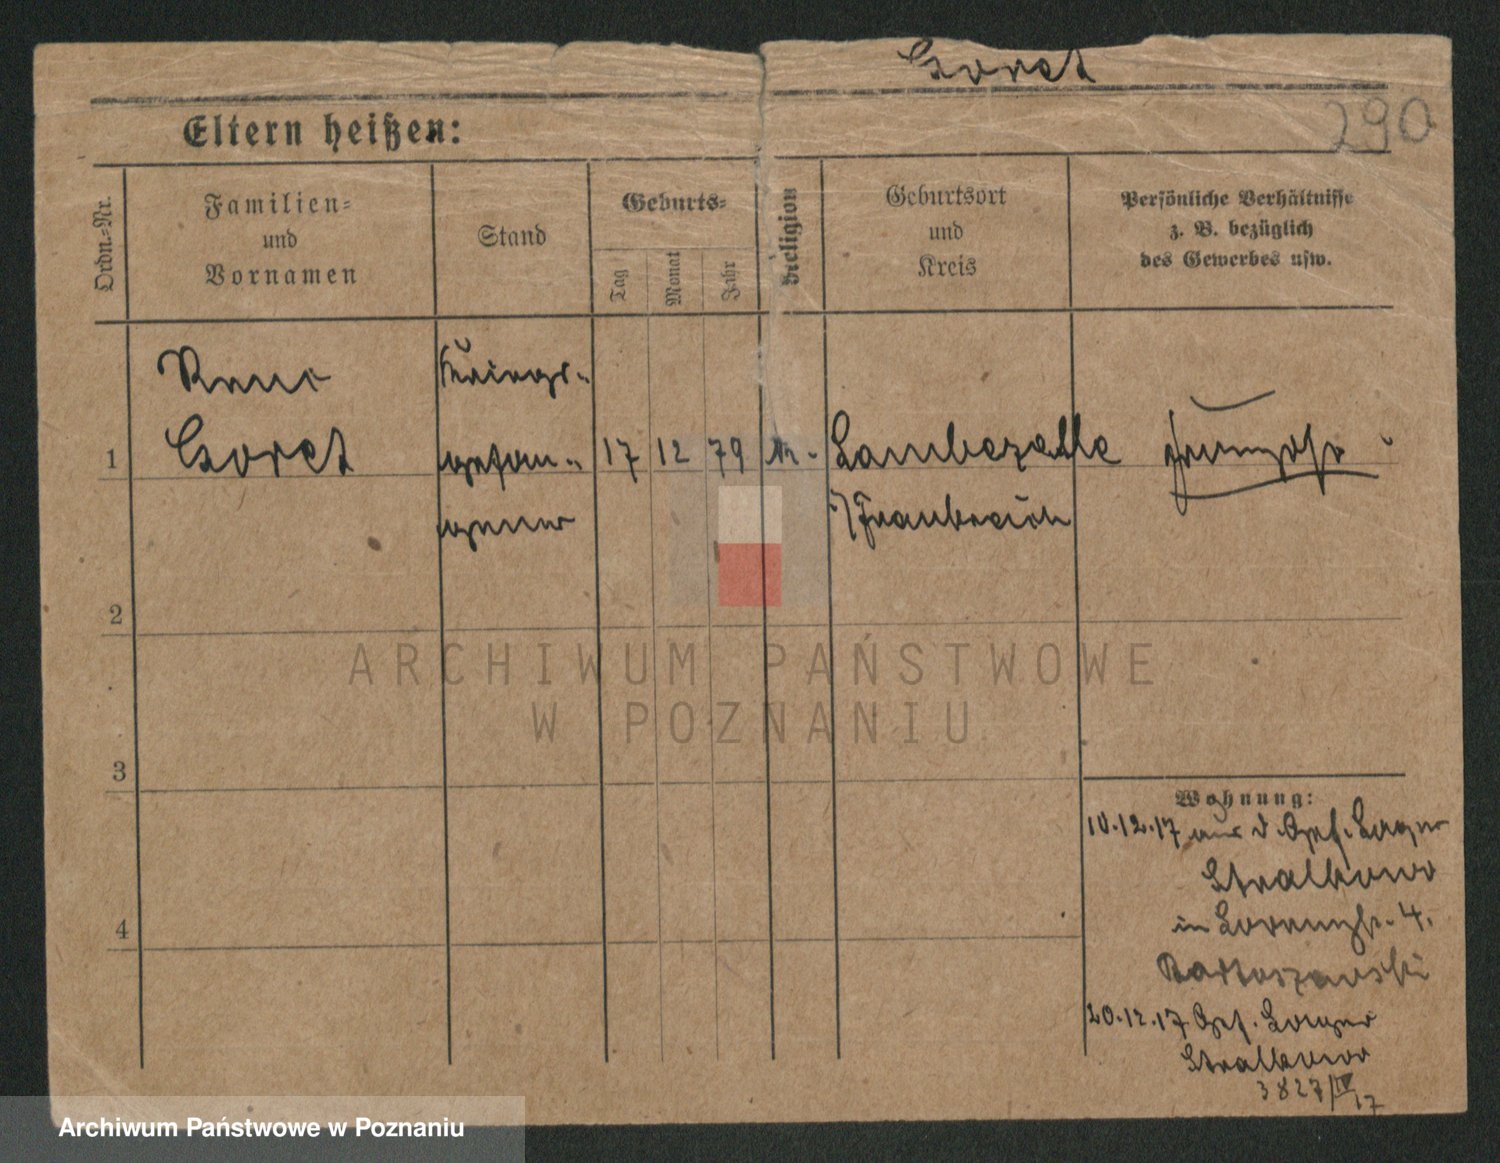 Goret
290
Eltern heißen:
Ordn.-Nr.
Familien-
und
Vornamen
Stand
Geburts-
Tag
Monat
Jahr
Religion
Geburtsort
und
Kreis
Persönliche Verhältnisse
z. B. bezüglich
des Gewerbes usw.
Kriegs-
Goret
1
gefan-
17 12 79
Franzose
gener
i/Frankreich
2
ARCHIWUM PAŃSTWOWE
W POZNANIU
3
Wohnung:
10.12.17 aus d. Gef. Lager
Stralkowo
in
4.
4
20.12.17 Gef. Lager
Stralkowo
3827/IV
17
Archiwum Państwowe w Poznaniu